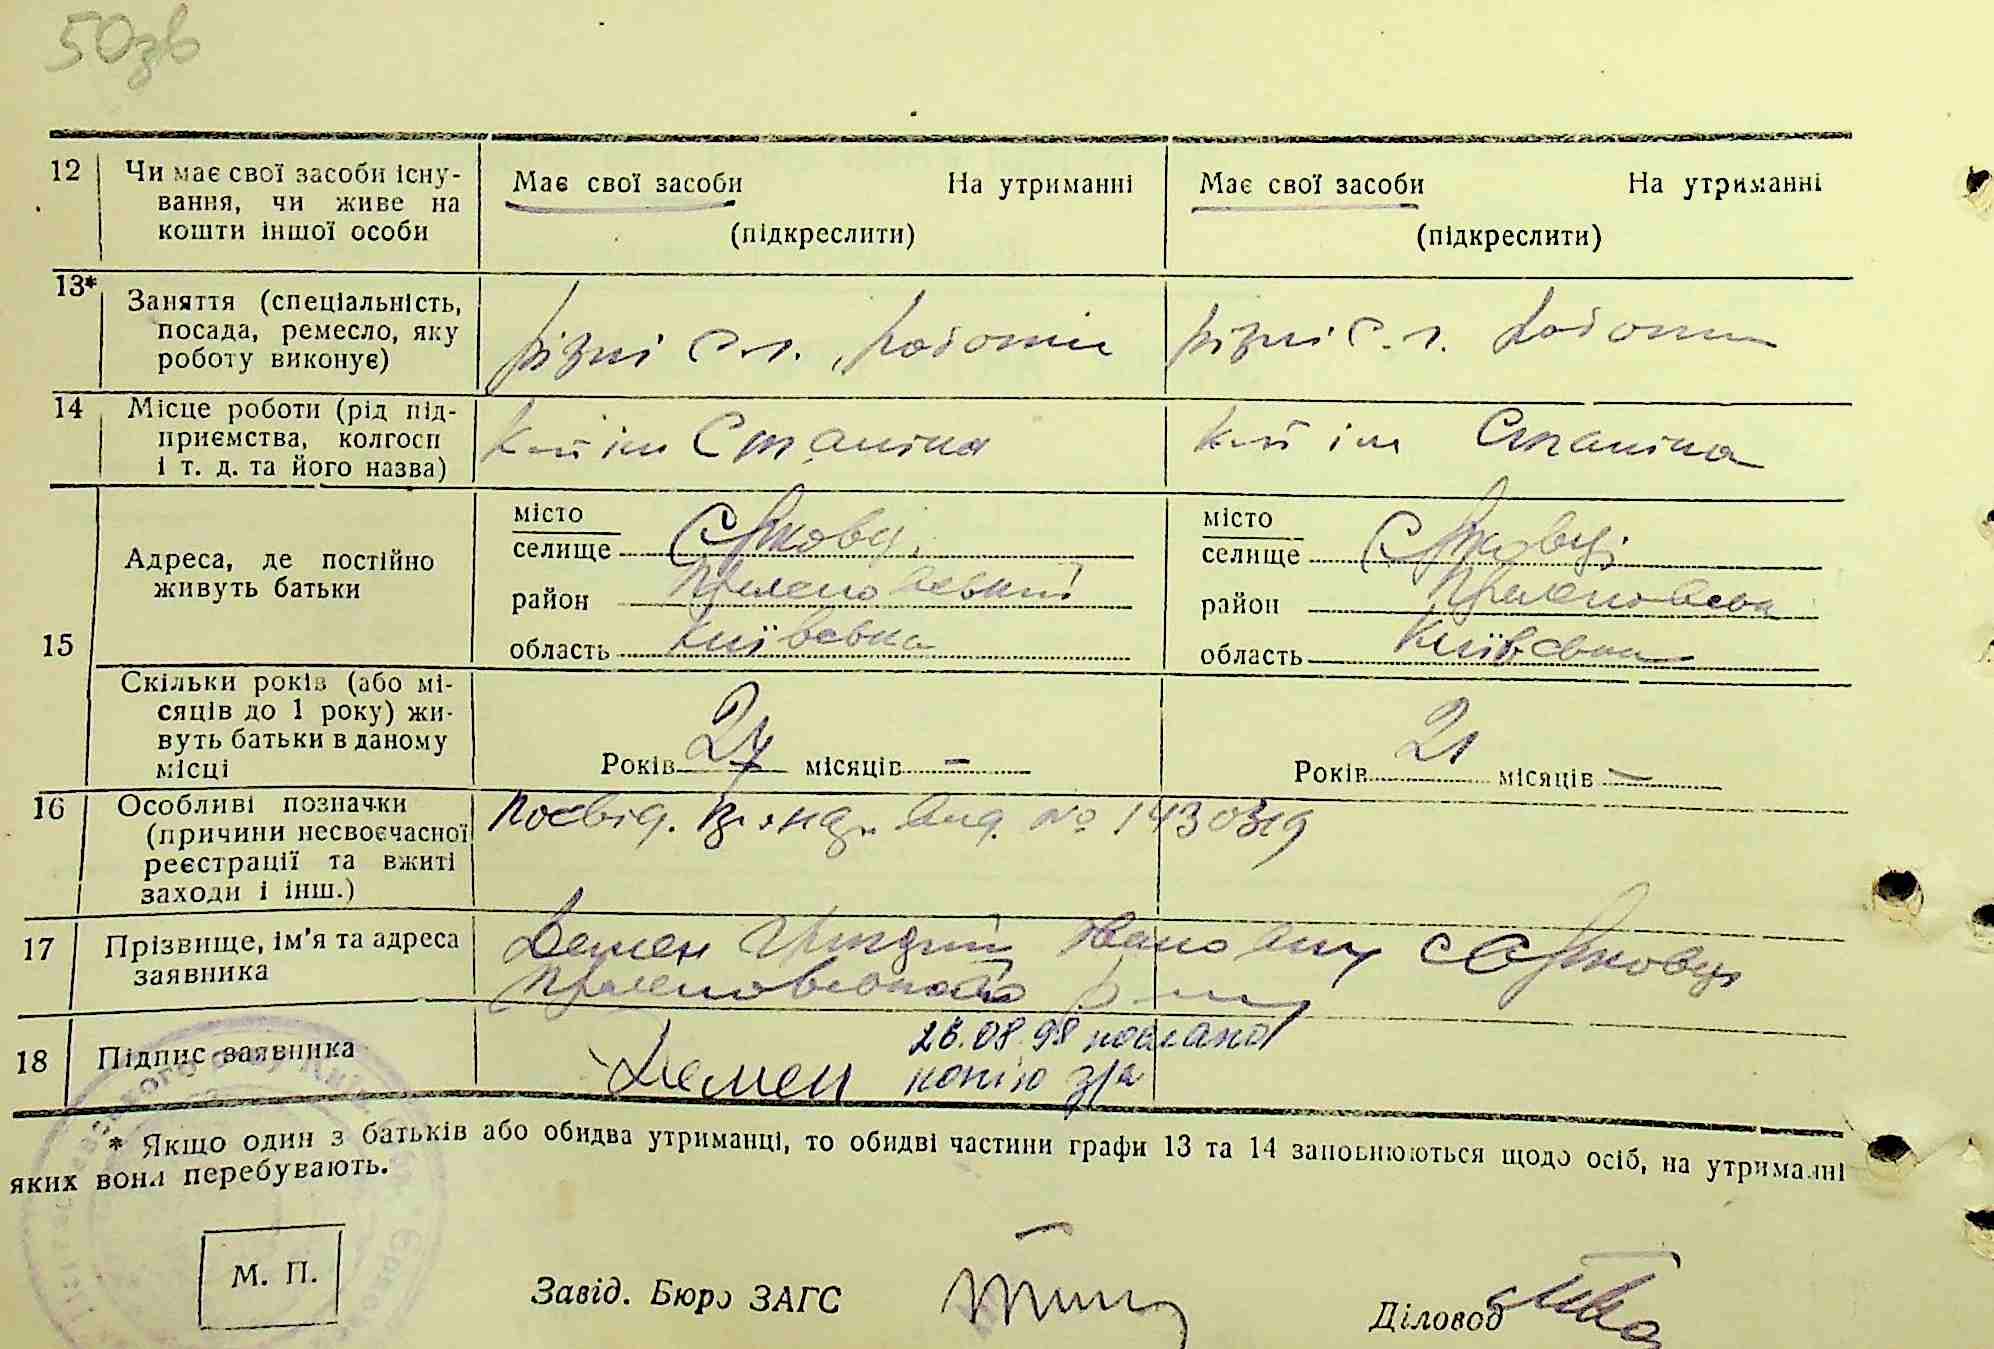 50зв
12 Чи має свої засоби існу-
вання, чи живе на
кошти іншої особи
Має свої засоби На утриманні
(підкреслити)
Має свої засоби На утриманні
(підкреслити)
13* Заняття (спеціальність,
посада, ремесло, яку
роботу виконує)
різні с.г. роботи
різні с.г. роботи
14 Місце роботи (рід під-
приємства, колгосп
і т. д. та його назва)
ім Сталіна
ім Сталіна
15 Адреса, де постійно
живуть батьки
місто
селище
район
область Київська
місто
селище
район
область Київська
Скільки років (або мі-
сяців до 1 року) жи-
вуть батьки в даному
місці
Років 27 місяців —
Років 21 місяців —
16 Особливі позначки
(причини несвоєчасної
реєстрації та вжиті
заходи і інш.)
Посвід. вид. №
17 Прізвище, ім'я та адреса
заявника
Демен Іванович с
18 Підпис заявника
Демен
26.08.98 послано
копію
* Якщо один з батьків або обидва утриманці, то обидві частини графи 13 та 14 заповнюються щодо осіб, на утриманні
яких вони перебувають.
М. П.
Завід. Бюро ЗАГС
Діловод